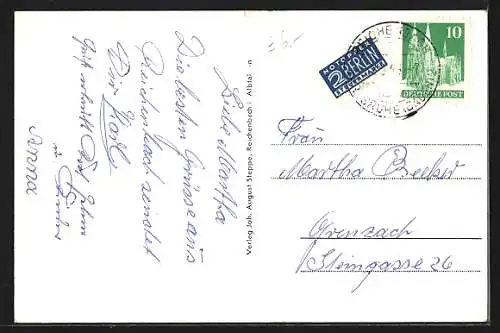 Liebe Martha
Die besten Grüsse aus
Reichenbach sendet
Dir Karl
Anna
Verlag Joh. August Steppe, Reichenbach i. Albtal
NOTOPFER
2 BERLIN
STEUERMARKE
10
DEUTSCHE POST
Frau
Martha Becker
Grenzach
Steingasse 26